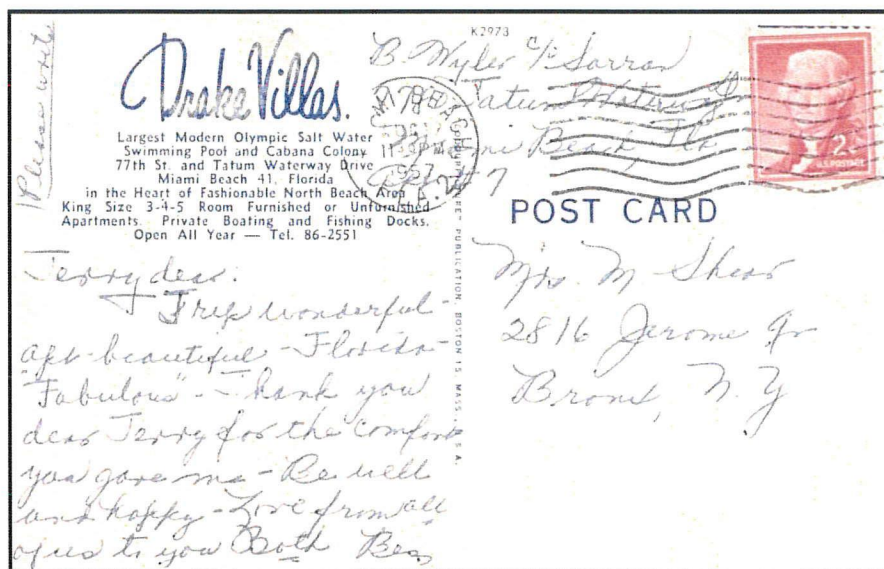 Please write
Drake Villas.
Largest Modern Olympic Salt Water
Swimming Pool and Cabana Colony
77th St. and Tatum Waterway Drive
Miami Beach 41, Florida
in the Heart of Fashionable North Beach Area
King Size 3-4-5 Room Furnished or Unfurnished
Apartments. Private Boating and Fishing Docks.
Open All Year — Tel. 86-2551
Terry dear.
Trip wonderful-
apt beautiful - Florida-
"Fabulous" - Thank you
dear Terry for the comfort
you gave me - Be well
and happy - Love from all
of us to you Both
K2973
B. Wyler c/o
Tatum Waterway
Beach, Fla
#7
BEACH
PM
1957
2¢
U.S. POSTAGE
PUBLICATION, BOSTON 15, MASS., U.S.A.
POST CARD
Mrs. M
2816 Jerome
Bronx, N.Y